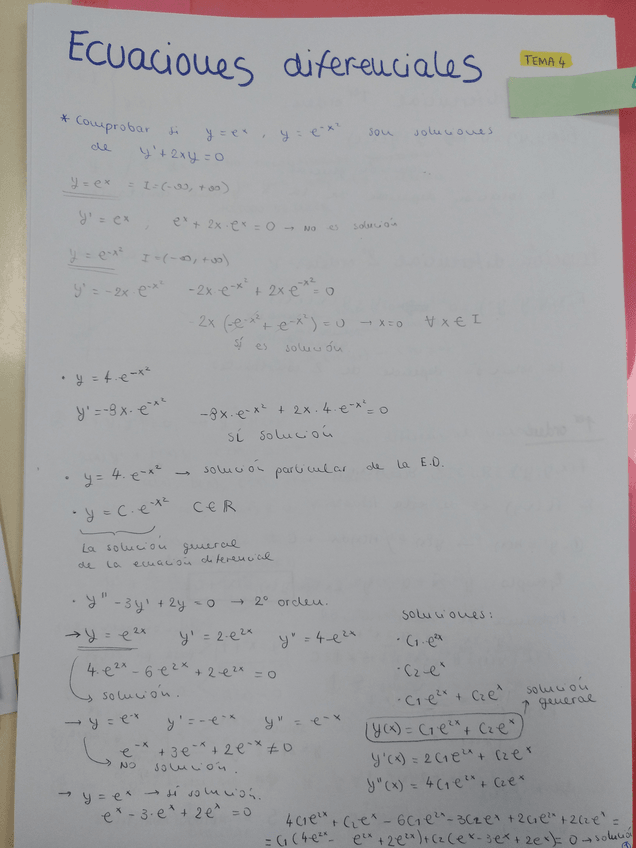 Ecuaciones diferenciales
TEMA 4
* Comprobar si y = eˣ, y = e^(-x²) son soluciones
de y' + 2xy = 0
y = eˣ = I = (-∞, +∞)
y' = eˣ, eˣ + 2x·eˣ = 0 → No es solución
y = e^(-x²) I = (-∞, +∞)
y' = -2x·e^(-x²) -2x·e^(-x²) + 2x e^(-x²) = 0
-2x (-e^(-x²) + e^(-x²)) = 0 → x=0 ∀x ∈ I
Sí es solución
· y = 4·e^(-x²)
y' = -8x·e^(-x²) -8x·e^(-x²) + 2x·4·e^(-x²) = 0
sí solución
· y = 4·e^(-x²) → solución particular de la E.D.
· y = C·e^(-x²) C∈ℝ
La solución general
de la ecuación diferencial
· y'' - 3y' + 2y = 0 → 2º orden.
→ y = e^(2x) y' = 2·e^(2x) y'' = 4·e^(2x)
4·e^(2x) - 6·e^(2x) + 2·e^(2x) = 0
solución.
→ y = e^(-x) y' = -e^(-x) y'' = e^(-x)
e^(-x) + 3e^(-x) + 2e^(-x) ≠ 0
No solución.
→ y = eˣ → sí solución.
eˣ - 3·eˣ + 2eˣ = 0
soluciones:
· C₁·e^(2x)
· C₂·eˣ
· C₁·e^(2x) + C₂eˣ
solución
general
y(x) = C₁e^(2x) + C₂eˣ
y'(x) = 2C₁e^(2x) + C₂eˣ
y''(x) = 4C₁e^(2x) + C₂eˣ
4C₁e^(2x) + C₂eˣ - 6C₁e^(2x) - 3C₂eˣ + 2C₁e^(2x) + 2C₂eˣ =
= C₁(4e^(2x) - e^(2x) + 2e^(2x)) + C₂(eˣ - 3eˣ + 2eˣ) = 0 → solución